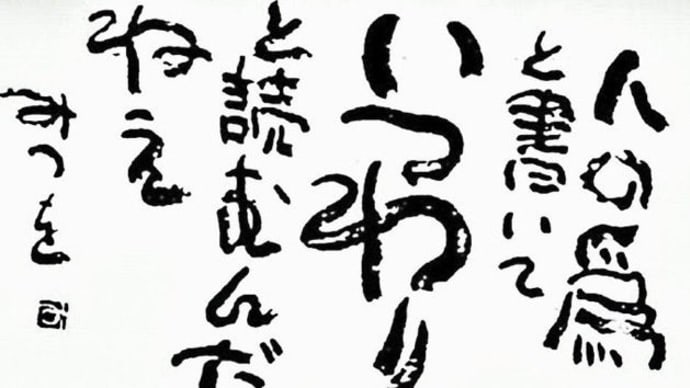 人の為
と書いて
いつわり
と読むんだ
ねえ
みつを